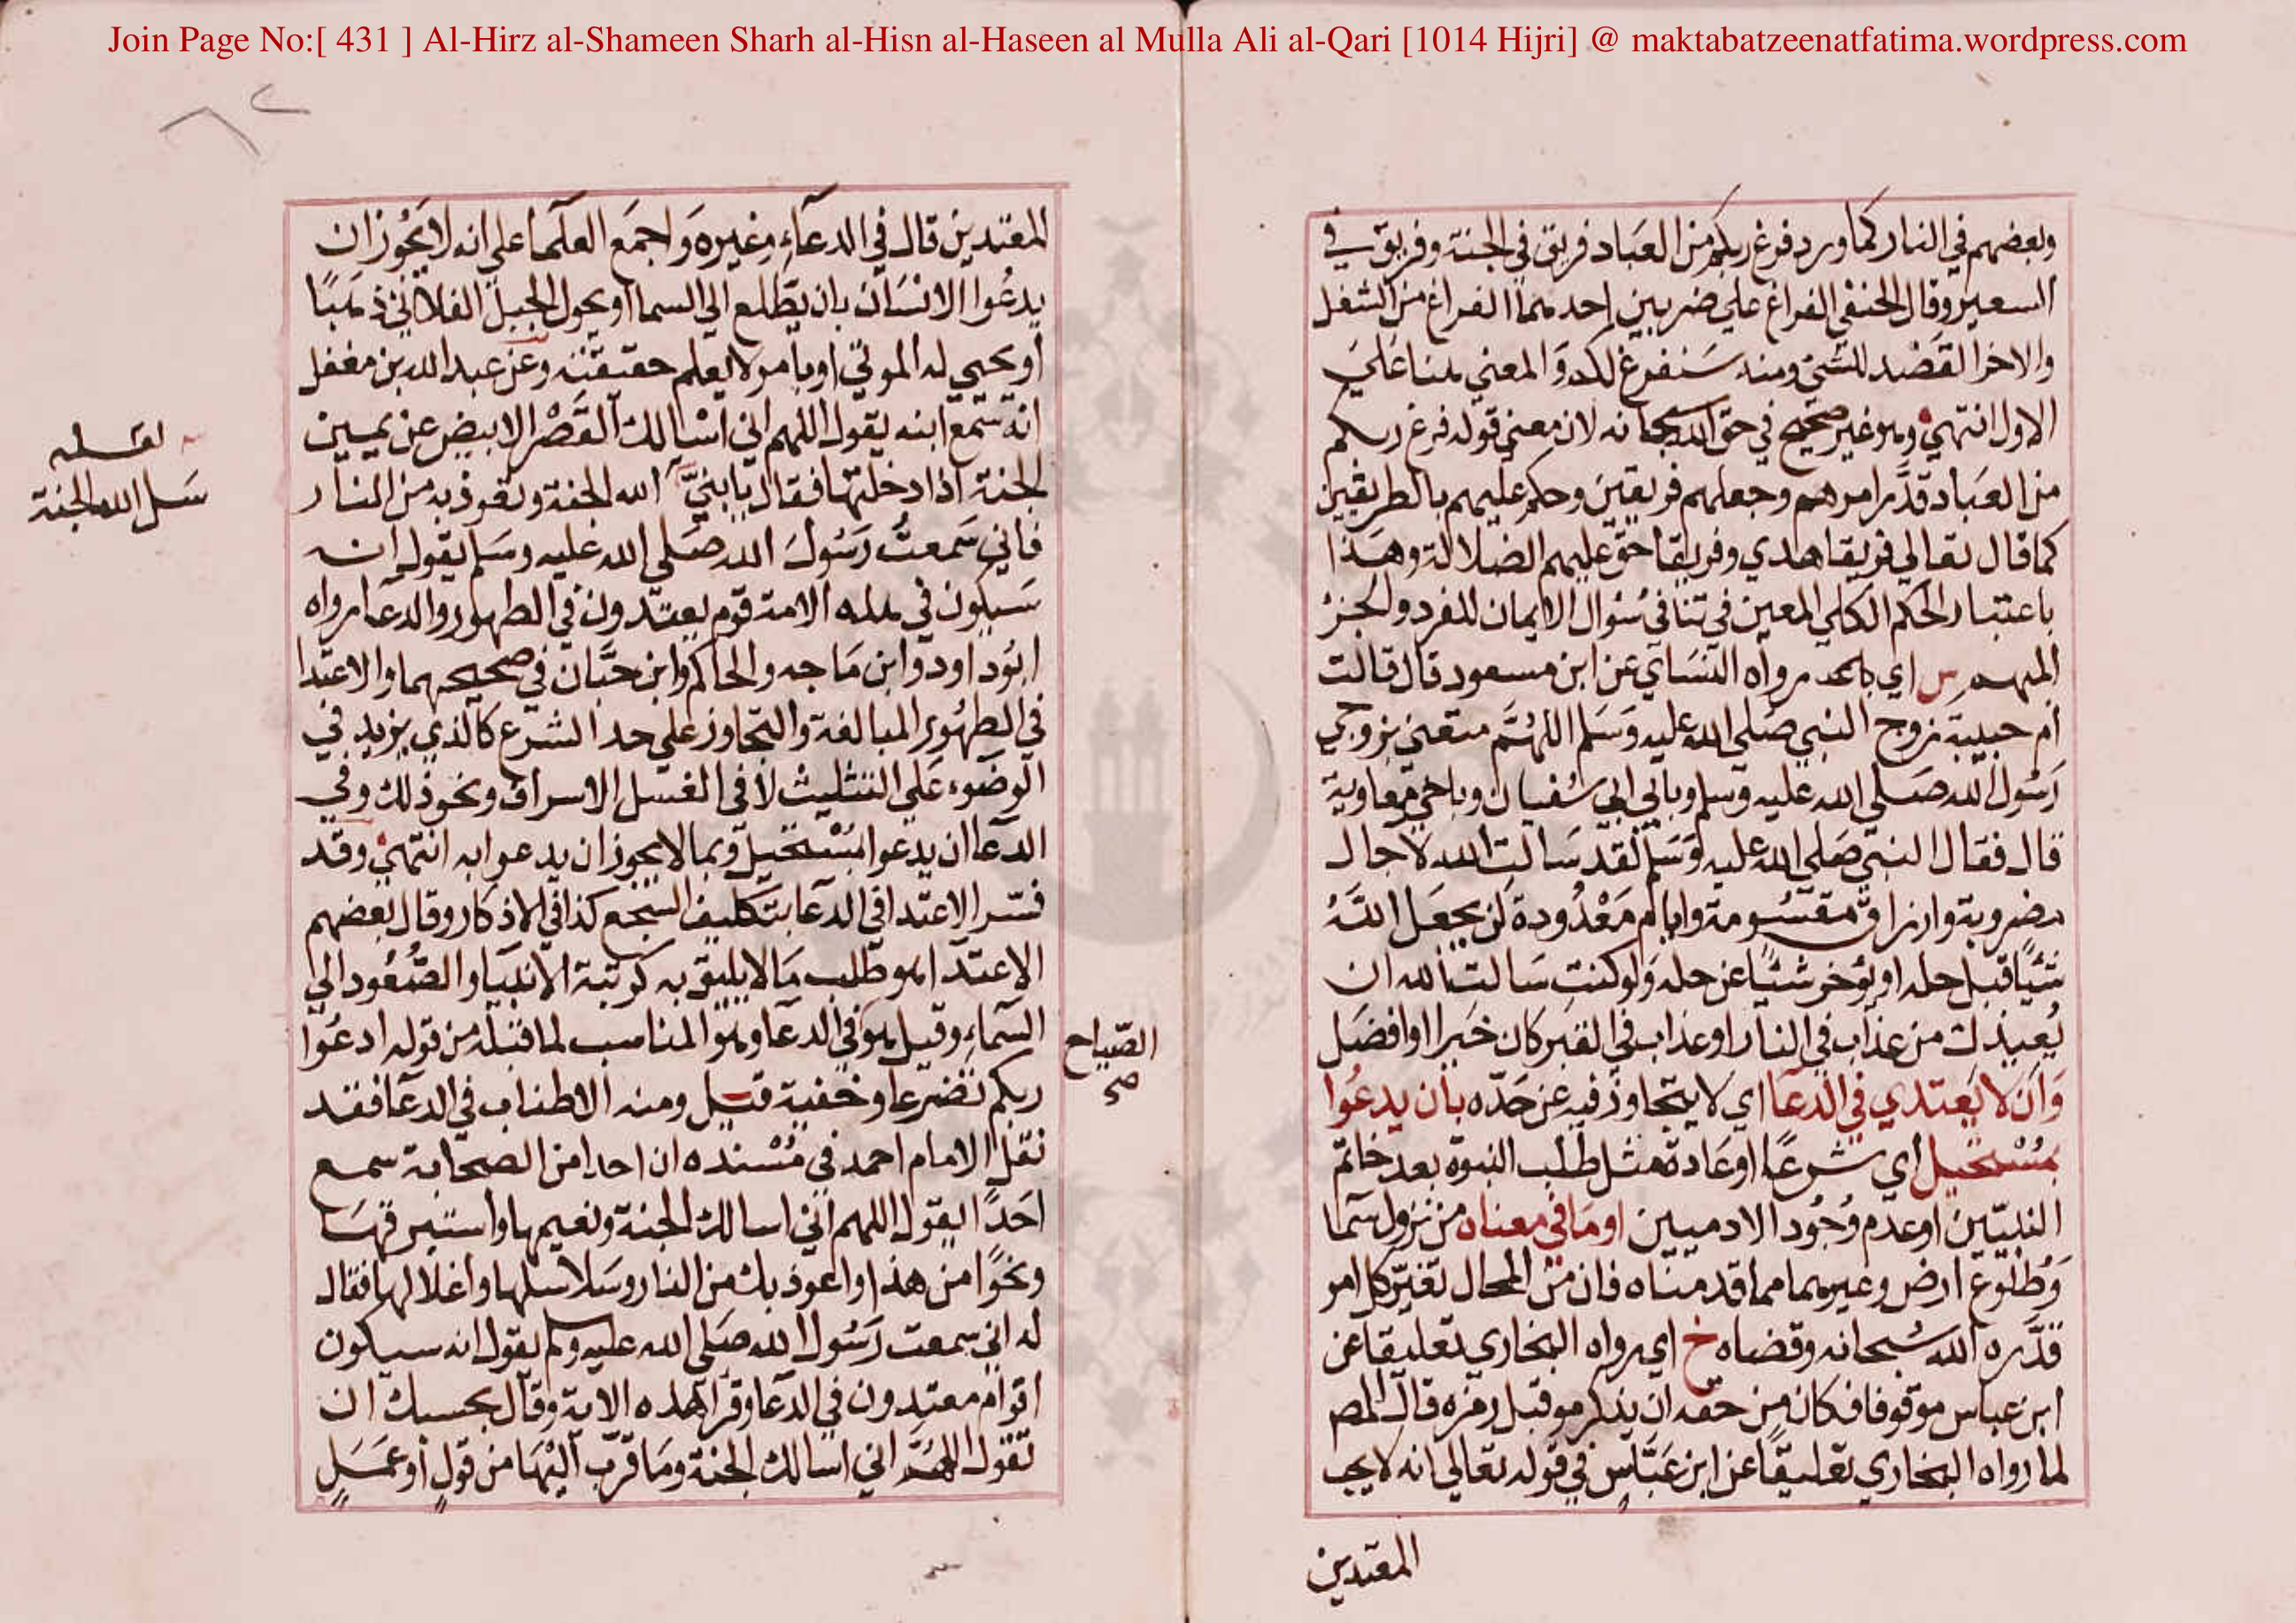 Join Page No:[ 431 ] Al-Hirz al-Shameen Sharh al-Hisn al-Haseen al Mulla Ali al-Qari [1014 Hijri] @ maktabatzeenatfatima.wordpress.com
وبعضهم في النار كما ورد فرغ ربكم من العباد فريق في الجنة وفريق في
السعير وقال الحنفي الفراغ علي ضربين احدهما الفراغ من الشغل
والاخر القصد للشي ومنه سنفرغ لكم والمعني هنا علي
الاول انتهي وهو غير صحيح في حق الله سبحانه لان معني قوله فرغ ربكم
من العباد قدر امرهم وجعلهم فريقين وحكم عليهم بالطريقين
كما قال تعالي فريقا هدي وفريقا حق عليهم الضلالة وهذا
باعتبار الحكم الكلي المعين في تنافي سُؤال الايمان للفرد والجنز
المبهم س اي رواه النسَاي عن ابن مسعود قال قالت
ام حبيبة زوج النبي صَلي الله عليه وَسَلم اللهُمَّ متعني بزوجي
رَسُول الله صَلي الله عليه وسلم وبابي ابي سُفيان وباخي معاوية
قال فقال النبي صَلي الله عليه وَسَلم لقد سَالت الله لاجال
مضروبة وارزاق مقسُومة وايام مَعْدُودة لن يعجل اللهُ
شَيًا قبل حله او يؤخر شيًا عن حله وَلو كنتِ سَالت الله ان
يُعيذك من عذاب في النار او عذاب في القبر كان خيرا او افضَل
وَان لا يَعتدي في الدعا اي لا يتجاوز فيه عن حَدّه بان يدعُوا
بمُسْتحيل اي شرعًا او عَادة مثل طلب النبوة بعد خاتم
النبيّين او عدم وُجُود الادميين او مَا في معناه من نزول سَما
وَطُلوع ارض وغيرهما مما قدمناه فان من المحال تغير كل امر
قدّره الله سُبحانه وقضاه خ اي رواه البخاري تعليقا عن
ابن عباس موقوفا فكان من حقه ان يذكر مو قبل رمزه قال المصـ
لما رواه البخاري تعليقًا عن ابن عَبّاس في قوله تعالي انه لا يحب
المعتدين
المعتدين قال في الدعآءِ وغيره وَاجمَع العلَما علي انه لا يَجُوز ان
يدعُوا الانسَان بان يَطلع الي السما او يحول الجبل الفلاني ذهَبًا
او يحيي له الموتي او بامر لا يعلم حقيقته وعن عبد الله بن مغفل
انه سَمع ابنه يقول اللهم اني اسْالك القَصْر الابيض عن يمين
الجنة اذا دخلتها فقال يا بنيّ الله الجنة وتعوذ به من النار
فاني سَمعت رَسُولَ الله صَلي الله عليه وسَلم يقول انه
سَيكون في هذه الامة قوم يعتدون في الطهور والدعا رواه
ابوُ داود وابن مَاجه والحاكم وابن حبَّان في صحيحهما والاعتدا
في الطهُور المبالغة والتجاوز علي حد الشرع كالذي يزيد في
الوضوء عَلي التثليث لا في الغسل الاسراف ونحو ذلك وفي
الدعا ان يدعوا بمُسْتحيل وبما لا يجوز ان يدعو به انتهي وقد
فسّر الاعتدا في الدعا بتكليف السّجع كذا في الاذكار وقال بعضهم
الاعتدا هو طلب مَا لا يليق به كرتبة الانبيَا والصُّعُود الي
السّماءِ وقيل هو في الدعا وهو المناسب لما قبله من قوله ادعُوا
ربكم تضرعا وخفية قيل ومنه الاطناب في الدعا فقد
نقل الامام احمد في مُسْنده ان احدا من الصحابة سمع
احَدًا يقول اللهم اني اسالك الجنة ونعيمها واستبرقهَا
ونحوًا من هذا واعوذ بك من النار وسَلاسلها واغلالها فقال
له اني سمعت رَسُول الله صَلي الله عليه وسلم يقول انه سيكون
اقوام معتدون في الدعا وقرا هذه الاية وقال بحسبك ان
تقول اللهُمَّ اني اسالك الجنة ومَا قرّب اليْهَا من قولٍ او عمَلٍ
سَل الله الجنة
الصّياح
صح